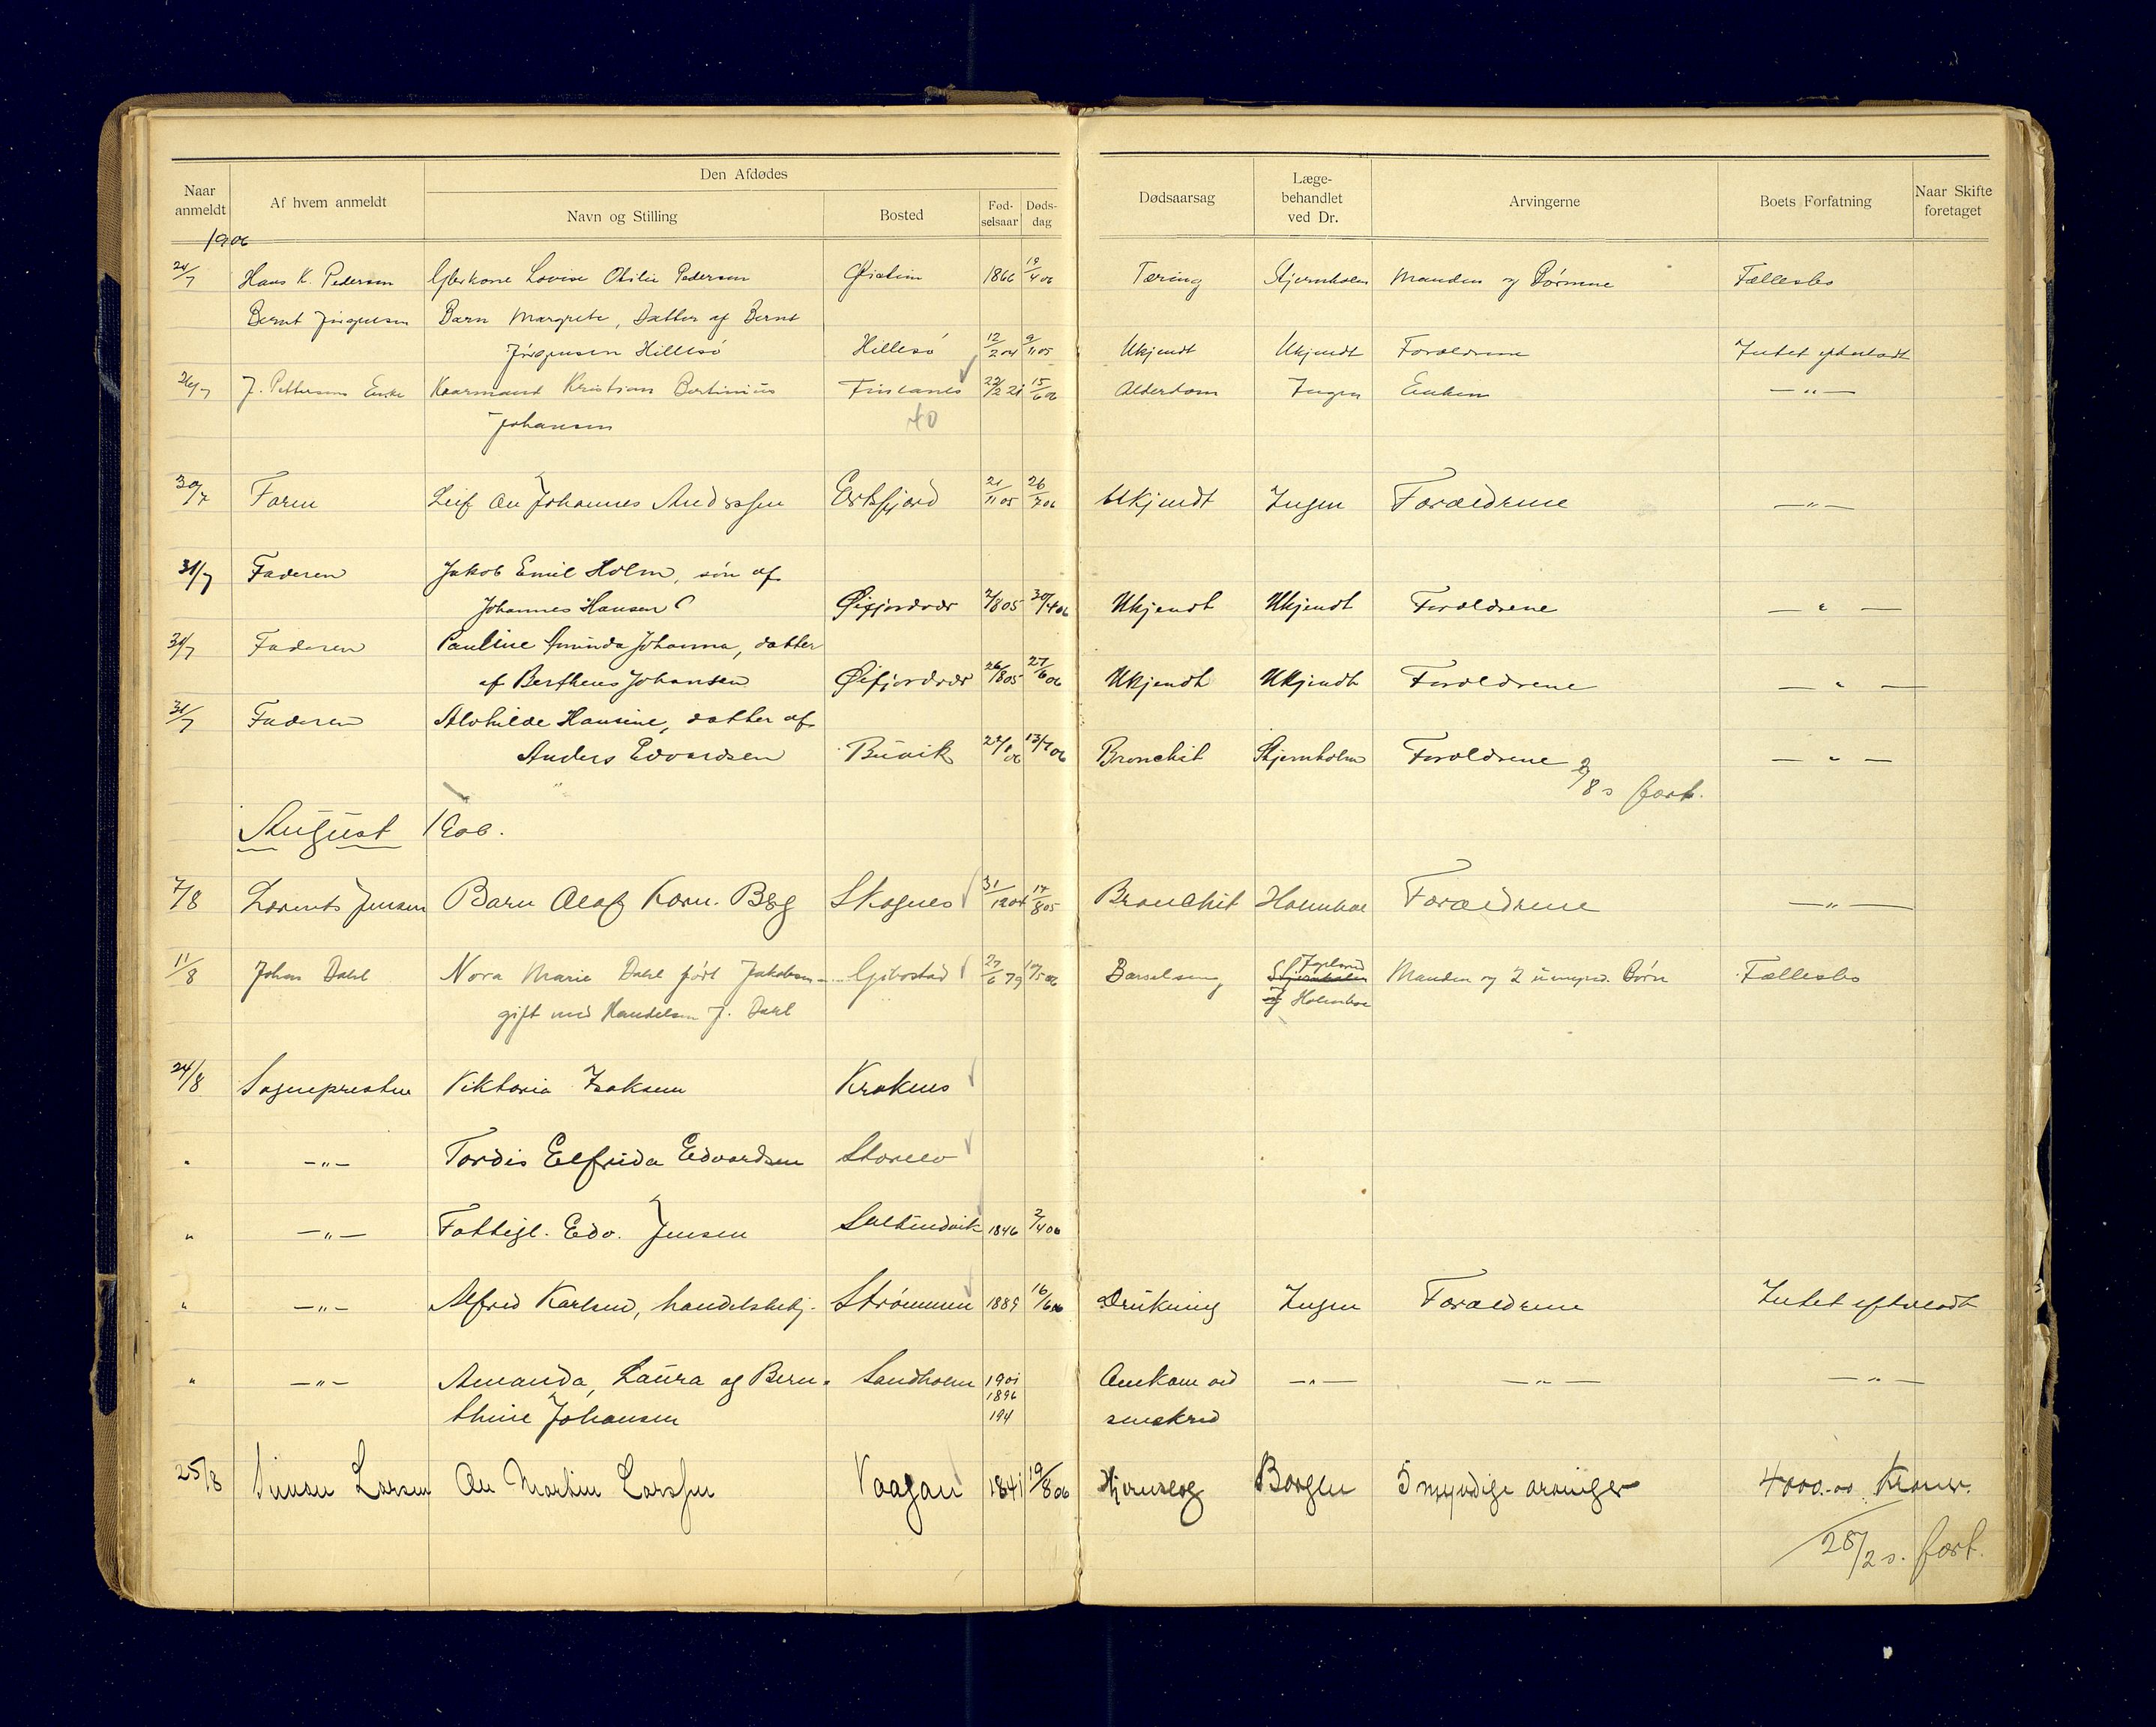 Naar anmeldt
Af hvem anmeldt
Den Afdødes
Navn og Stilling
Bosted
Fød- selsaar
Døds- dag
Dødsaarsag
Læge- behandlet ved Dr.
Arvingerne
Boets Forfatning
Naar Skifte foretaget
1906
24/7 Hans K. Pedersen Gårkone Lovise Otilie Pedersen 1866 19/4 06 Tæring Stjernholm Manden og Børnene Fællesbo
Bernt Jørgensen Barn Margrete, Datter af Bernt
Jørgensen Hillesø Hillesø 12/2 04 9/11 05 Ukjendt Ukjendt Forældrene Intet efterladt
26/7 J. Pettersens Enke Kaarmand Kristian Bertinius Finlanes 22/2 21 15/6 06 Alderdom Ingen Enken — " —
Johansen
30/7 Faren Leif Johannes Anderssen Ersfjord 21/11 05 26/7 06 Ukjendt Ingen Forældrene — " —
31/7 Faderen Jakob Emil Holm, søn af
Johannes Hansen Øifjordvær 2/8 05 30/4 06 Ukjendt Ukjendt Forældrene — " —
31/7 Faderen Pauline Aminda Johanna, datter
af Bertheus Johansen Øifjordvær 26/8 05 27/6 06 Ukjendt Ukjendt Forældrene — " —
31/7 Faderen Alvhilde Hansine, datter af
Anders Edvardsen Buvik 13/7 06 Bronchit Stjernholm Forældrene — " —
2/8 s fort.
August 1906.
7/8 Lorents Jensen Barn Olaf Korn. Berg Skognes 31/12 04 17/8 05 Bronchit Holmboe Forældrene — " —
11/8 Johan Dahl Nora Marie Dahl født Jakobsen Gibostad 27/6 79 Barselseng Stjernholm Manden og 2 umynd. Børn Fællesbo
gift med Handelsm J. Dahl og Holmboe
24/8 Sognepresten Viktoria Isaksen Kraknes
" — " — Tordis Elfrida Edvardsen Storelv
" — " — Fattigl. Edv. Jensen Saltindvik 1846 2/4 06
" — " — Alfred Karlsen, handelsbetj. Strømmen 1889 16/6 06 Drukning Ingen Forældrene Intet efterladt
" — " — Amanda, Laura og Bern- Sandholm 1901 Omkom ved — " — — " — — " —
1896
thine Johansen 194 sneskred
25/8 Simon Larsen Ole Martin Larssen Vaagan 1841 19/8 06 Hjerneslag Borgen 5 myndige arvinger 4000.00 Kroner.
28/2 s. fort.